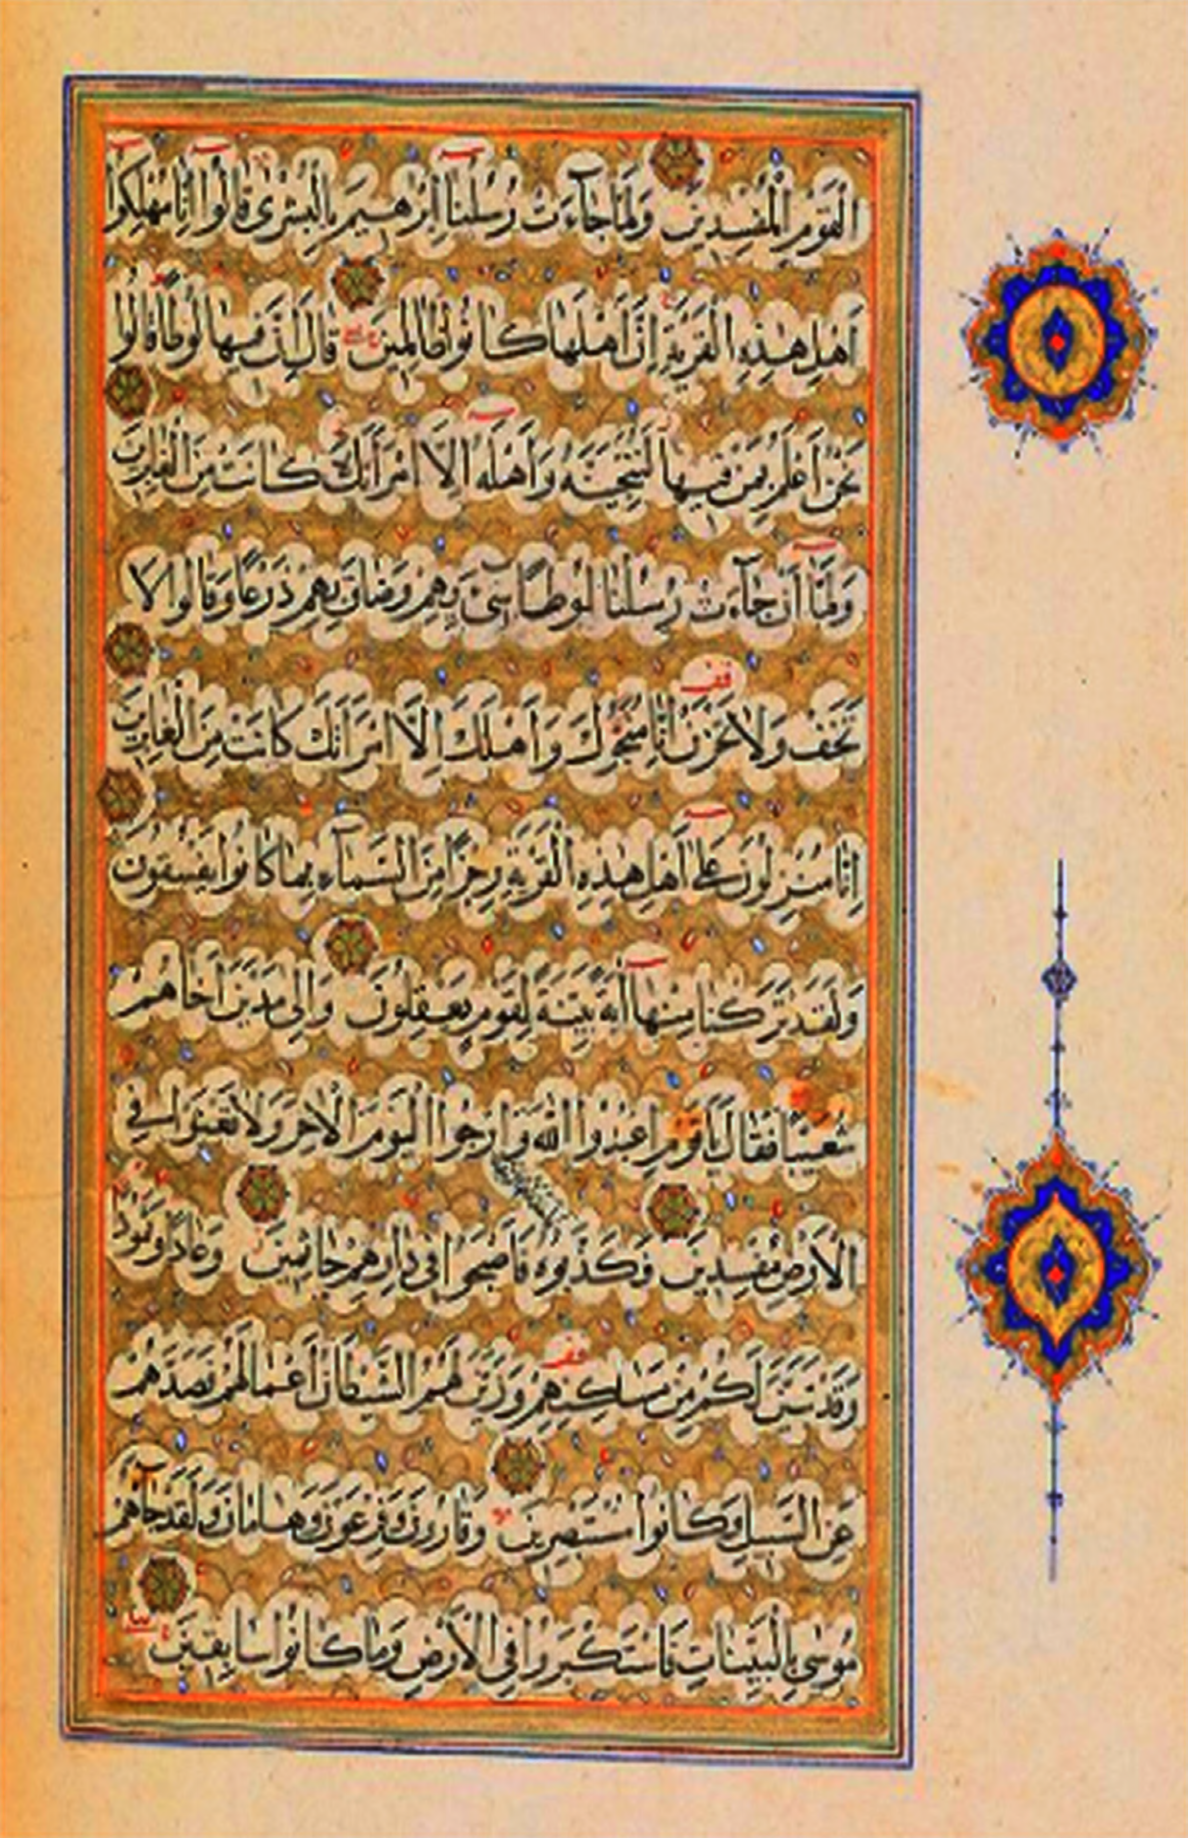 الْقَوْمِ الْمُفْسِدِينَ وَلَمَّا جَآءَتْ رُسُلُنَا اِبْرٰهِيمَ بِالْبُشْرٰى قَالُوا اِنَّا مُهْلِكُوا
اَهْلِ هٰذِهِ الْقَرْيَةِ اِنَّ اَهْلَهَا كَانُوا ظَالِمِينَ قَالَ اِنَّ فِيهَا لُوطًا قَالُوا
نَحْنُ اَعْلَمُ بِمَنْ فِيهَا لَنُنَجِّيَنَّهُ وَاَهْلَهُ اِلَّا امْرَاَتَهُ كَانَتْ مِنَ الْغَابِرِينَ
وَلَمَّا اَنْ جَآءَتْ رُسُلُنَا لُوطًا سِىٓءَ بِهِمْ وَضَاقَ بِهِمْ ذَرْعًا وَقَالُوا لَا
تَخَفْ وَلَا تَحْزَنْ اِنَّا مُنَجُّوكَ وَاَهْلَكَ اِلَّا امْرَاَتَكَ كَانَتْ مِنَ الْغَابِرِينَ
اِنَّا مُنْزِلُونَ عَلٰى اَهْلِ هٰذِهِ الْقَرْيَةِ رِجْزًا مِنَ السَّمَآءِ بِمَا كَانُوا يَفْسُقُونَ
وَلَقَدْ تَرَكْنَا مِنْهَا اٰيَةً بَيِّنَةً لِقَوْمٍ يَعْقِلُونَ وَاِلٰى مَدْيَنَ اَخَاهُمْ
شُعَيْبًا فَقَالَ يَا قَوْمِ اعْبُدُوا اللّٰهَ وَارْجُوا الْيَوْمَ الْاٰخِرَ وَلَا تَعْثَوْا فِى
الْاَرْضِ مُفْسِدِينَ فَكَذَّبُوهُ فَاَصْبَحُوا فِى دَارِهِمْ جَاثِمِينَ وَعَادًا وَثَمُودَ
وَقَدْ تَبَيَّنَ لَكُمْ مِنْ مَسَاكِنِهِمْ وَزَيَّنَ لَهُمُ الشَّيْطَانُ اَعْمَالَهُمْ فَصَدَّهُمْ
عَنِ السَّبِيلِ وَكَانُوا مُسْتَبْصِرِينَ وَقَارُونَ وَفِرْعَوْنَ وَهَامَانَ وَلَقَدْ جَآءَهُمْ
مُوسٰى بِالْبَيِّنَاتِ فَاسْتَكْبَرُوا فِى الْاَرْضِ وَمَا كَانُوا سَابِقِينَ